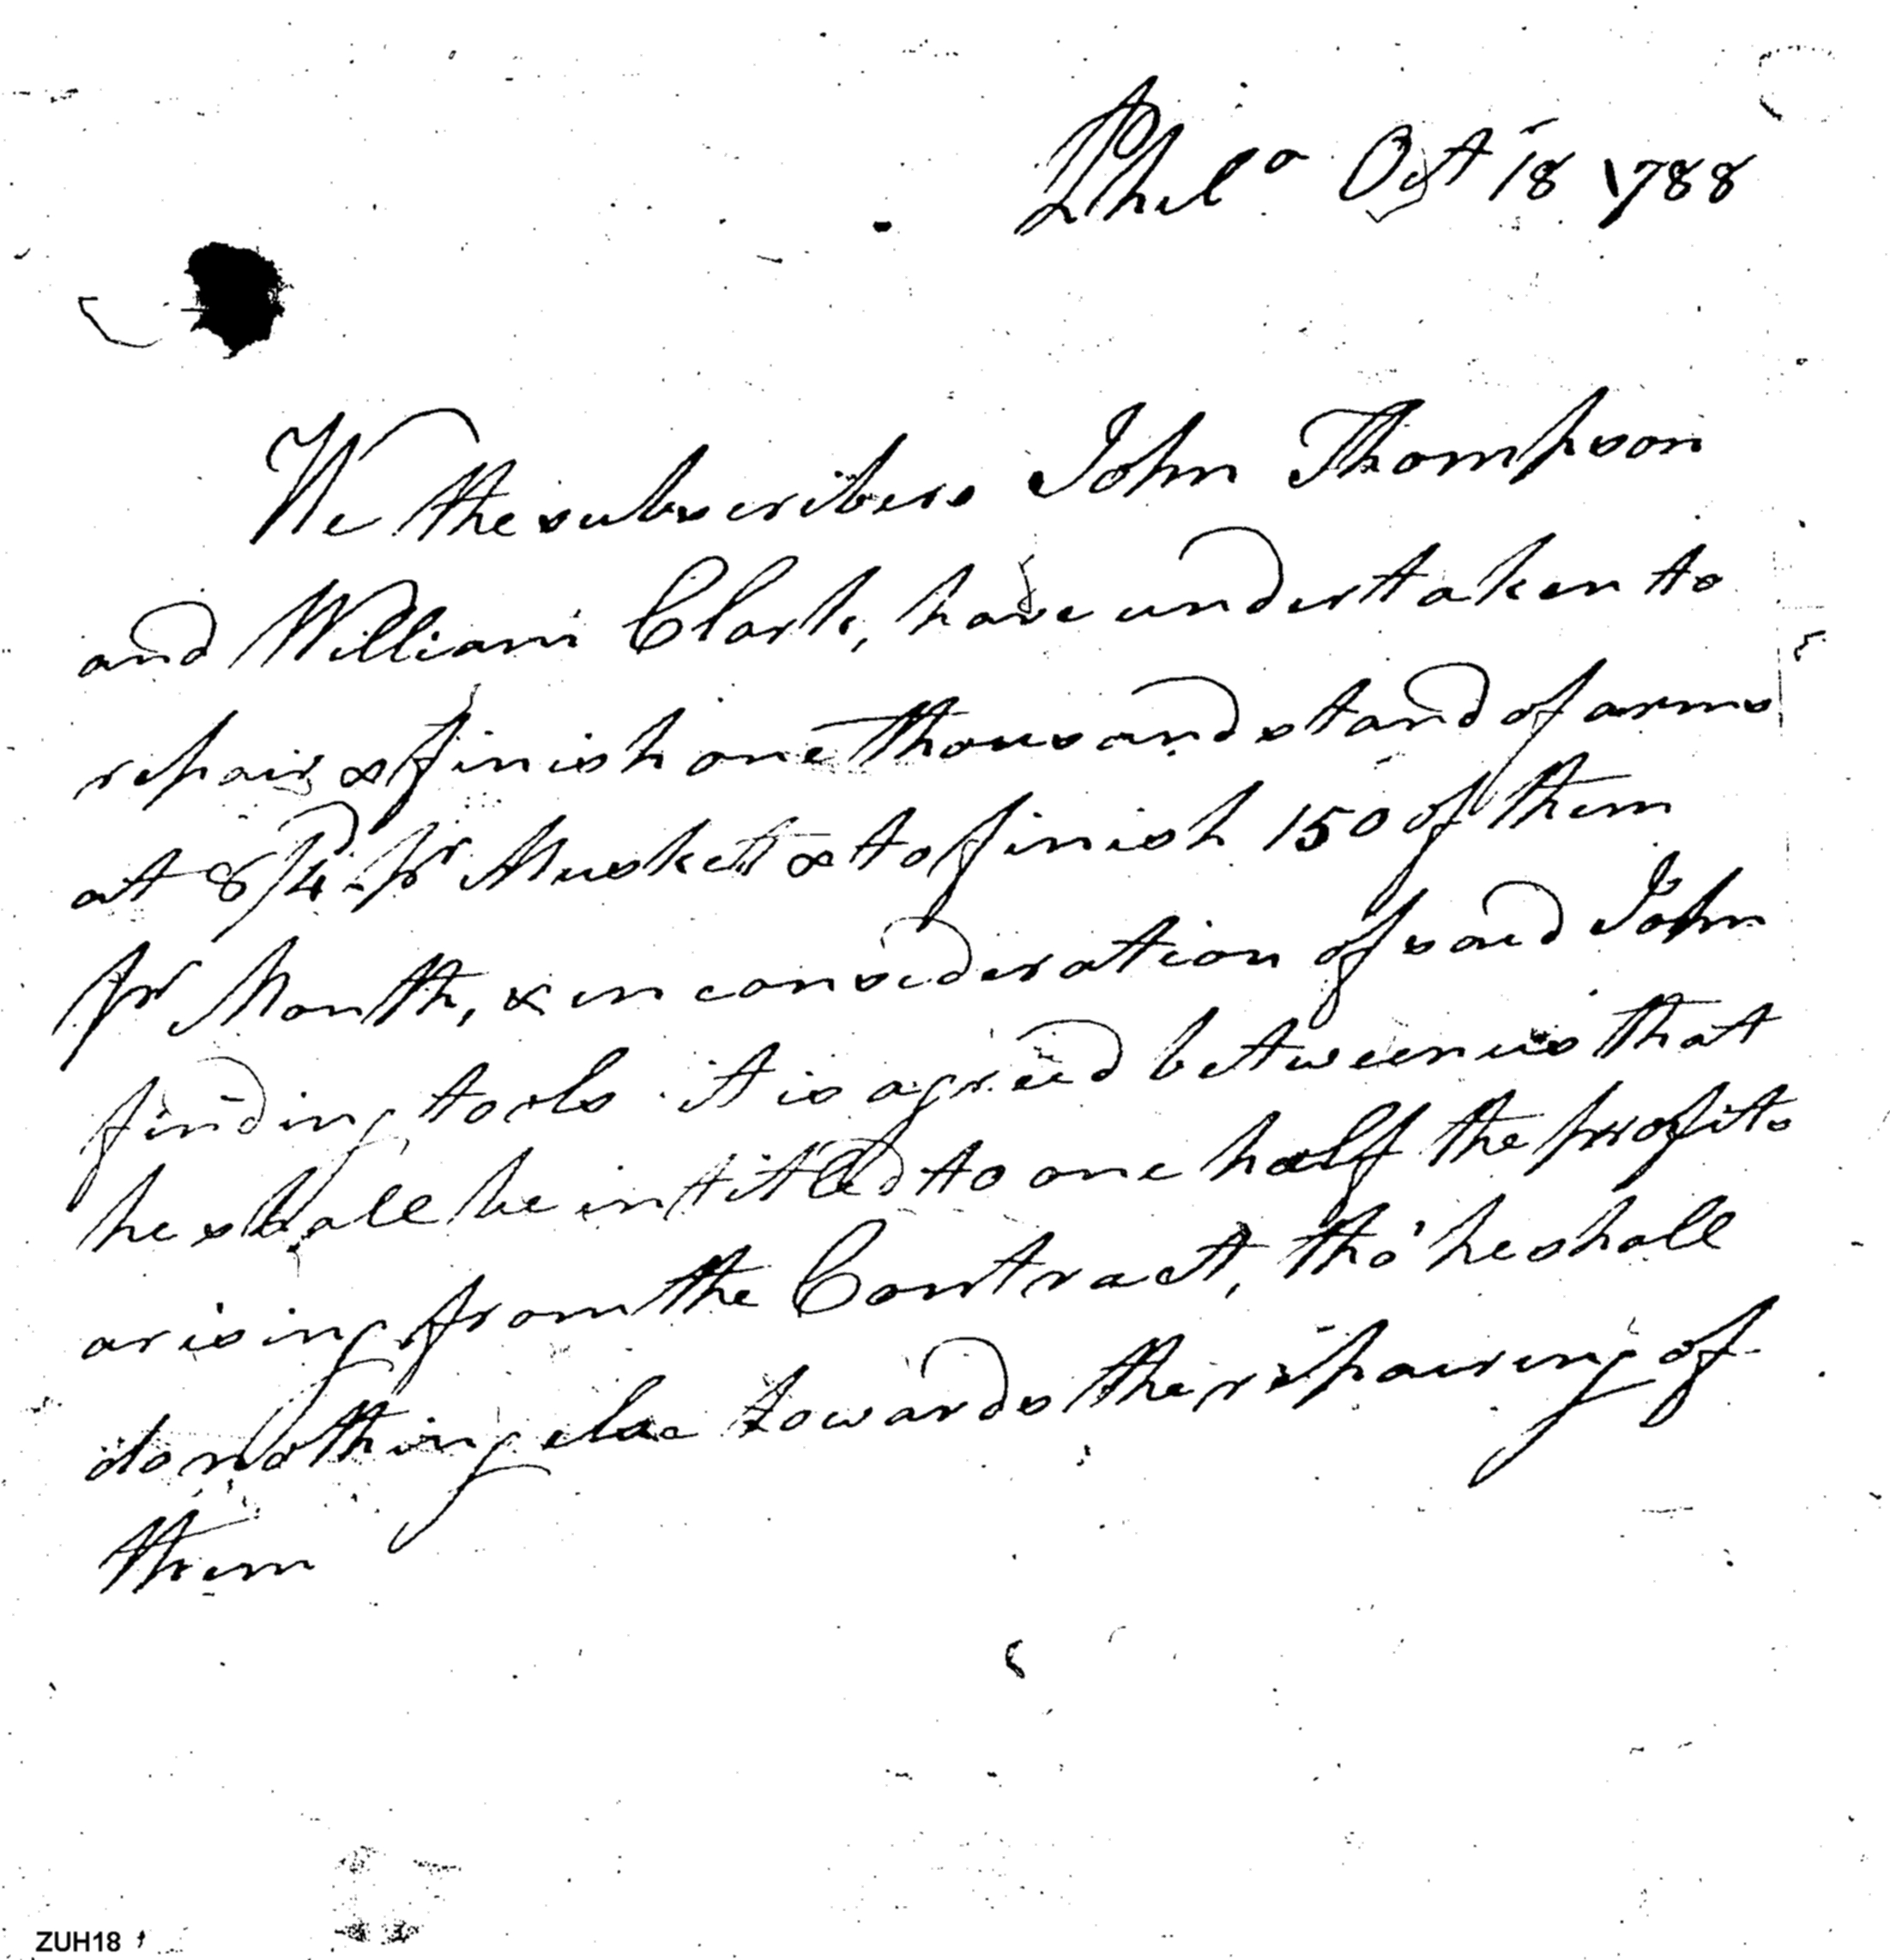 Phila Oct 18 1788
We the subscribers John Thompson
and William Clark, have undertaken to
repair & finish one thousand stand of arms
at 8/4d pr Muskett & to finish 150 of them
pr Month, & in consideration of said John
finding tools it is agreed between us that
he shall be intitled to one half the profits
arising from the Contract, tho' he shall
do nothing else towards the repairing of
them
ZUH18